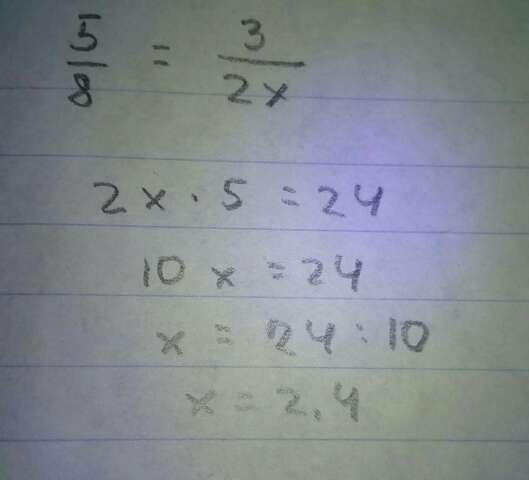 5/8 = 3/2x
2x · 5 = 24
10x = 24
x = 24 : 10
x = 2,4